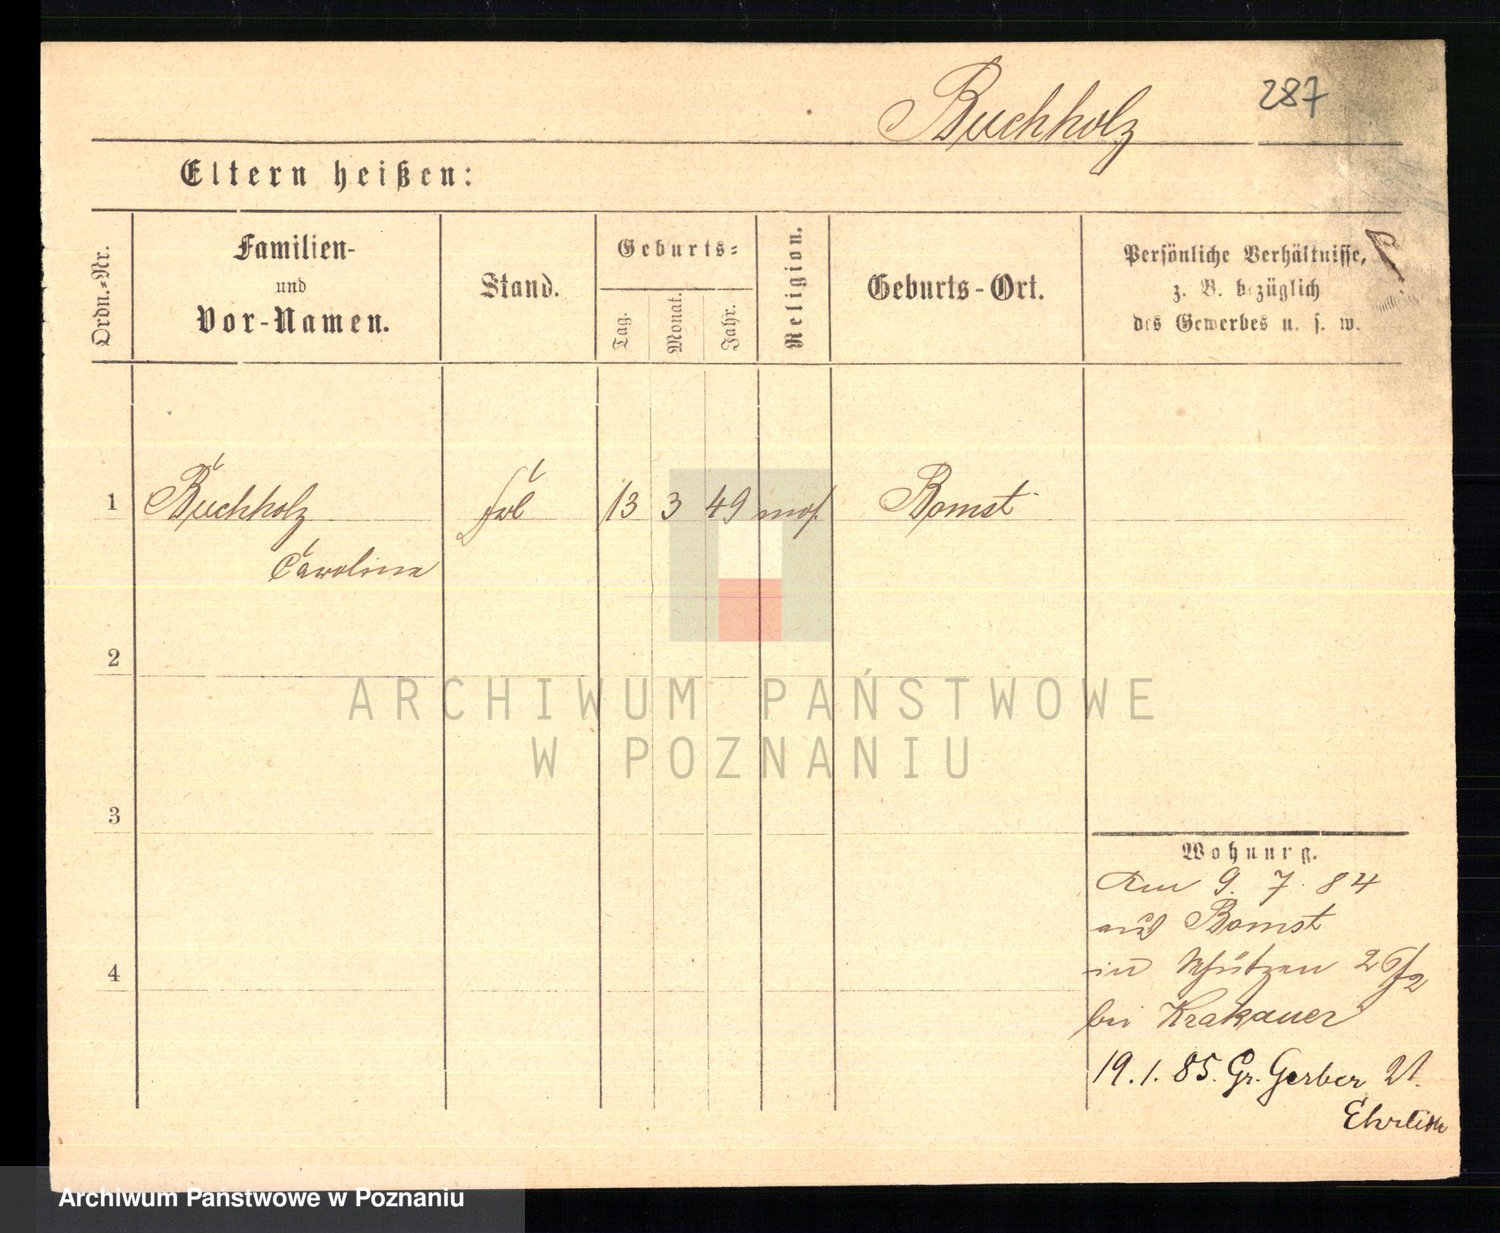 287
Buchholz
Eltern heißen:
Ordn.-Nr.
Familien-
und
Vor-Namen.
Stand.
Geburts-
Tag.
Monat.
Jahr.
Religion.
Geburts-Ort.
Persönliche Verhältnisse,
z. B. bezüglich
des Gewerbes u. s. w.
1 Buchholz 13 3 49 mos. Bomst
Carolina
2
ARCHIWUM PAŃSTWOWE
W POZNANIU
3
Wohnung.
Am 9. 7. 84
aus Bomst
in Schützen 26/2
bei Krakauer
4
19. 1. 85. Gr. Gerber 21.
Archiwum Państwowe w Poznaniu